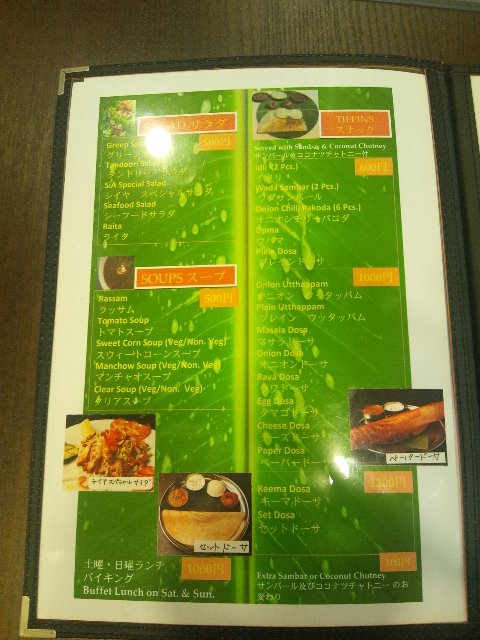 サラダ
500円
Green
グリーン
Tandoori Salad
タンドリー サラダ
SIA Special Salad
シイヤ スペシャルサラダ
Seafood Salad
シーフードサラダ
Raita
ライタ
SOUPS スープ
500円
Rassam
ラッサム
Tomato Soup
トマトスープ
Sweet Corn Soup (Veg/Non. Veg)
スウィートコーンスープ
Manchow Soup (Veg/Non. Veg)
マンチャオスープ
Clear Soup (Veg/Non. Veg)
クリアスープ
シイヤスペシャルサラダ
セットドーサ
土曜・日曜ランチ
バイキング
1000円
Buffet Lunch on Sat. & Sun.
TIFFINS
スナック
Served with Sambar & Coconut Chutney
サンバール&ココナツチャトニー付
600円
Idli (2 Pcs.)
Wada Sambar (2 Pcs.)
ワダサンバール
Onion Chilli Pakoda (6 Pcs.)
オニオンチリーパコダ
Upma
ウパマ
Plain Dosa
プレインドーサ
1000円
Onion Utthappam
オニオン ウッタッパム
Plain Uthappam
プレイン ウッタッパム
Masala Dosa
マサラドーサ
Onion Dosa
オニオンドーサ
Rava Dosa
ラワドーサ
Egg Dosa
タマゴドーサ
Cheese Dosa
チーズドーサ
Paper Dosa
ペーパードーサ
ペーパードーサ
1200円
Keema Dosa
キーマドーサ
Set Dosa
セットドーサ
100円
Extra Sambar or Coconut Chutney
サンバール及びココナツチャトニーのお
変わり